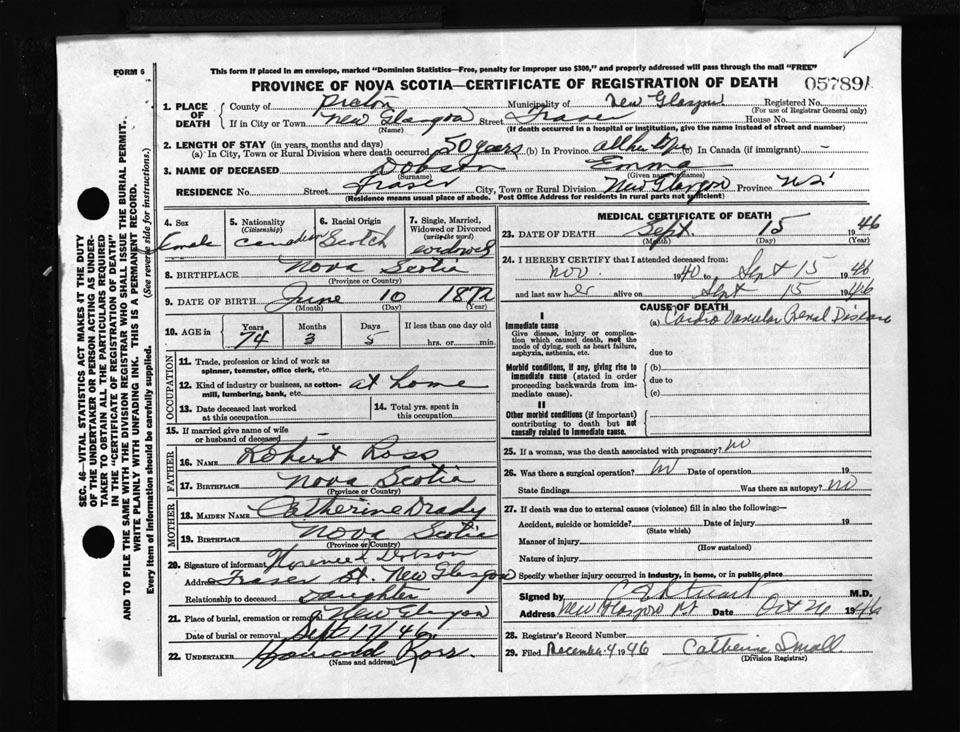 FORM 6
This form if placed in an envelope, marked "Dominion Statistics—Free, penalty for improper use $300," and properly addressed will pass through the mail "FREE"
PROVINCE OF NOVA SCOTIA—CERTIFICATE OF REGISTRATION OF DEATH
05789
1. PLACE OF DEATH
County of Pictou Municipality of New Glasgow Registered No.
(For use of Registrar General only)
If in City or Town New Glasgow Street Fraser House No.
(Name) (If death occurred in a hospital or institution, give the name instead of street and number)
2. LENGTH OF STAY (in years, months and days)
(a) In City, Town or Rural Division where death occurred 50 years (b) In Province all her life (c) In Canada (if immigrant) -
3. NAME OF DECEASED Dobson Emma
(Surname) (Given name or names)
RESIDENCE No. Street Fraser City, Town or Rural Division New Glasgow Province N.S.
(Residence means usual place of abode. Post Office Address for residents in rural parts not sufficient)
4. Sex female
5. Nationality (Citizenship) Canadian
6. Racial Origin Scotch
7. Single, Married, Widowed or Divorced (write the word) widowed
8. BIRTHPLACE Nova Scotia
(Province or Country)
9. DATE OF BIRTH June 10 1872
(Month) (Day) (Year)
10. AGE in Years Months Days If less than one day old
74 3 5 hrs. or min.
OCCUPATION
11. Trade, profession or kind of work as spinner, teamster, office clerk, etc.
12. Kind of industry or business, as cotton-mill, lumbering, bank, etc. at home
13. Date deceased last worked at this occupation
14. Total yrs. spent in this occupation
15. If married give name of wife or husband of deceased
FATHER
16. NAME Robert Ross
17. BIRTHPLACE Nova Scotia
(Province or Country)
MOTHER
18. MAIDEN NAME Catherine Drady
19. BIRTHPLACE Nova Scotia
(Province or Country)
20. Signature of informant Florence Dobson
Address Fraser St. New Glasgow
Relationship to deceased Daughter
21. Place of burial, cremation or removal New Glasgow
Date of burial or removal Sept 17/46
22. UNDERTAKER Howard Ross.
(Name and address)
MEDICAL CERTIFICATE OF DEATH
23. DATE OF DEATH Sept. 15 1946
(Month) (Day) (Year)
24. I HEREBY CERTIFY that I attended deceased from:
Nov. 1940 to Sept 15 1946
and last saw her alive on Sept 15 1946
CAUSE OF DEATH
I
Immediate cause
Give disease, injury or complication which caused death, not the mode of dying, such as heart failure, asphyxia, asthenia, etc.
(a) Cardio Vascular Renal Disease
due to
Morbid conditions, if any, giving rise to immediate cause (stated in order proceeding backwards from immediate cause).
(b)
due to
(c)
II
Other morbid conditions (if important) contributing to death but not causally related to immediate cause.
25. If a woman, was the death associated with pregnancy? no
26. Was there a surgical operation? no Date of operation 19
State findings Was there an autopsy? no
27. If death was due to external causes (violence) fill in also the following:—
Accident, suicide or homicide? Date of injury 19
(State which)
Manner of injury
(How sustained)
Nature of injury
Specify whether injury occurred in industry, in home, or in public place
Signed by Stuart M.D.
Address New Glasgow NS Date Oct 26 1946
28. Registrar's Record Number
29. Filed December 4 1946 Catherine Small.
(Division Registrar)
SEC. 46—VITAL STATISTICS ACT MAKES IT THE DUTY OF THE UNDERTAKER OR PERSON ACTING AS UNDERTAKER TO OBTAIN ALL THE PARTICULARS REQUIRED IN THE "CERTIFICATE OF REGISTRATION OF DEATH" AND TO FILE THE SAME WITH THE DIVISION REGISTRAR WHO SHALL ISSUE THE BURIAL PERMIT.
WRITE PLAINLY WITH UNFADING INK. THIS IS A PERMANENT RECORD.
Every item of information should be carefully supplied. (See reverse side for instructions.)